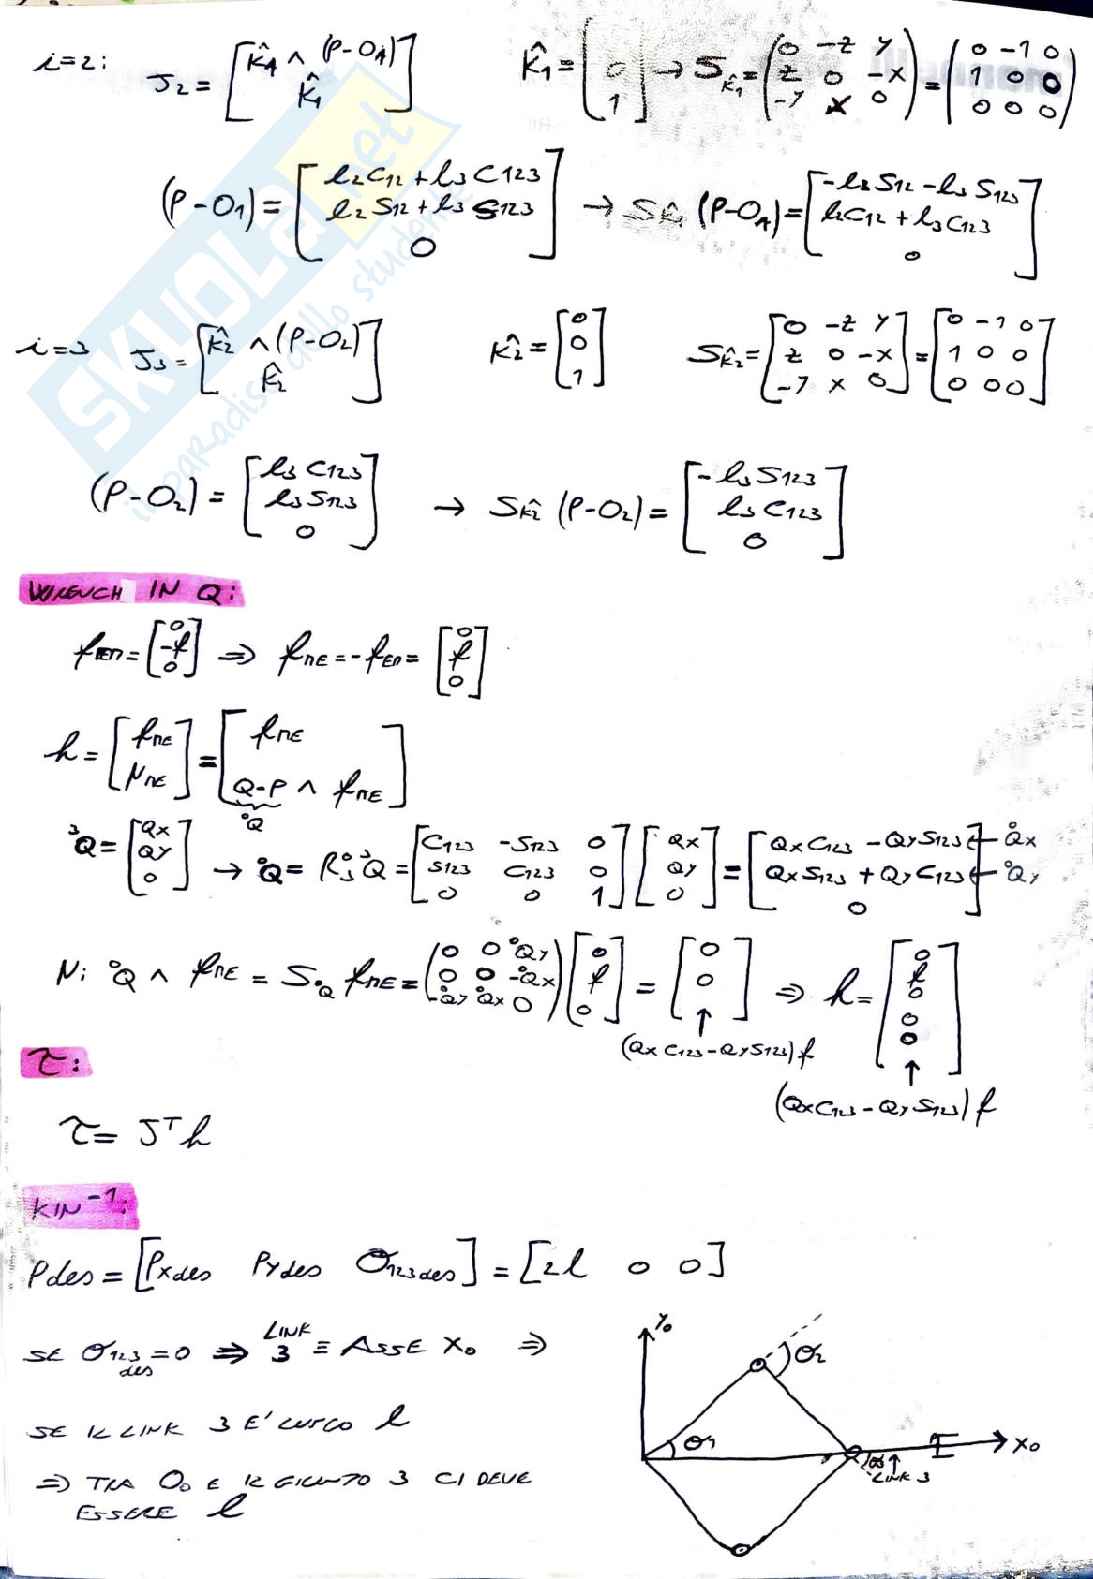 i=2: J₂ = [ k̂₁ ∧ (P-O₁) ; k̂₁ ]   k̂₁ = [ 0 ; 1 ] → S_k̂₁ = ( 0 -z y ; z 0 -x ; -y x 0 ) = ( 0 -1 0 ; 1 0 0 ; 0 0 0 )
(P-O₁) = [ l₂C₁₂ + l₃C₁₂₃ ; l₂S₁₂ + l₃S₁₂₃ ; 0 ] → S_k̂₁ (P-O₁) = [ -l₂S₁₂ - l₃S₁₂₃ ; l₂C₁₂ + l₃C₁₂₃ ; 0 ]
i=3 J₃ = [ k̂₂ ∧ (P-O₂) ; k̂₂ ]   k̂₂ = [ 0 ; 0 ; 1 ]   S_k̂₂ = [ 0 -z y ; z 0 -x ; -y x 0 ] = [ 0 -1 0 ; 1 0 0 ; 0 0 0 ]
(P-O₂) = [ l₃C₁₂₃ ; l₃S₁₂₃ ; 0 ] → S_k̂₂ (P-O₂) = [ -l₃S₁₂₃ ; l₃C₁₂₃ ; 0 ]
SKUOLA.net
il paradiso dello studente
WRENCH IN Q:
f_EM = [ 0 ; -f ; 0 ] ⇒ f_ME = -f_EM = [ 0 ; f ; 0 ]
h = [ f_ME ; N_ME ] = [ f_ME ; Q-P ∧ f_ME ]
⁰Q
³Q = [ Qx ; Qy ; 0 ] → ⁰Q = R₃⁰ ³Q = [ C₁₂₃ -S₁₂₃ 0 ; S₁₂₃ C₁₂₃ 0 ; 0 0 1 ] [ Qx ; Qy ; 0 ] = [ QxC₁₂₃ - QyS₁₂₃ ; QxS₁₂₃ + QyC₁₂₃ ; 0 ] ← ⁰Qx ← ⁰Qy
N: ⁰Q ∧ f_ME = S_⁰Q f_ME = ( 0 0 ⁰Qy ; 0 0 -⁰Qx ; -⁰Qy ⁰Qx 0 ) [ 0 ; f ; 0 ] = [ 0 ; 0 ; ↑ ] ⇒ h = [ 0 ; f ; 0 ; 0 ; 0 ; ↑ ]
(QxC₁₂₃ - QyS₁₂₃) f
(QxC₁₂₃ - QyS₁₂₃) f
τ:
τ = Jᵀh
KIN⁻¹:
Pdes = [ Pxdes Pydes θ₁₂₃des ] = [ 2l 0 0 ]
SE θ₁₂₃des = 0 ⇒ LINK 3 ≡ ASSE X₀ ⇒
SE IL LINK 3 E' LUNGO l
⇒ TRA O₀ E IL GIUNTO 3 CI DEVE
ESSERE l
Y₀
θ₂
θ₁
X₀
θ₃
LINK 3